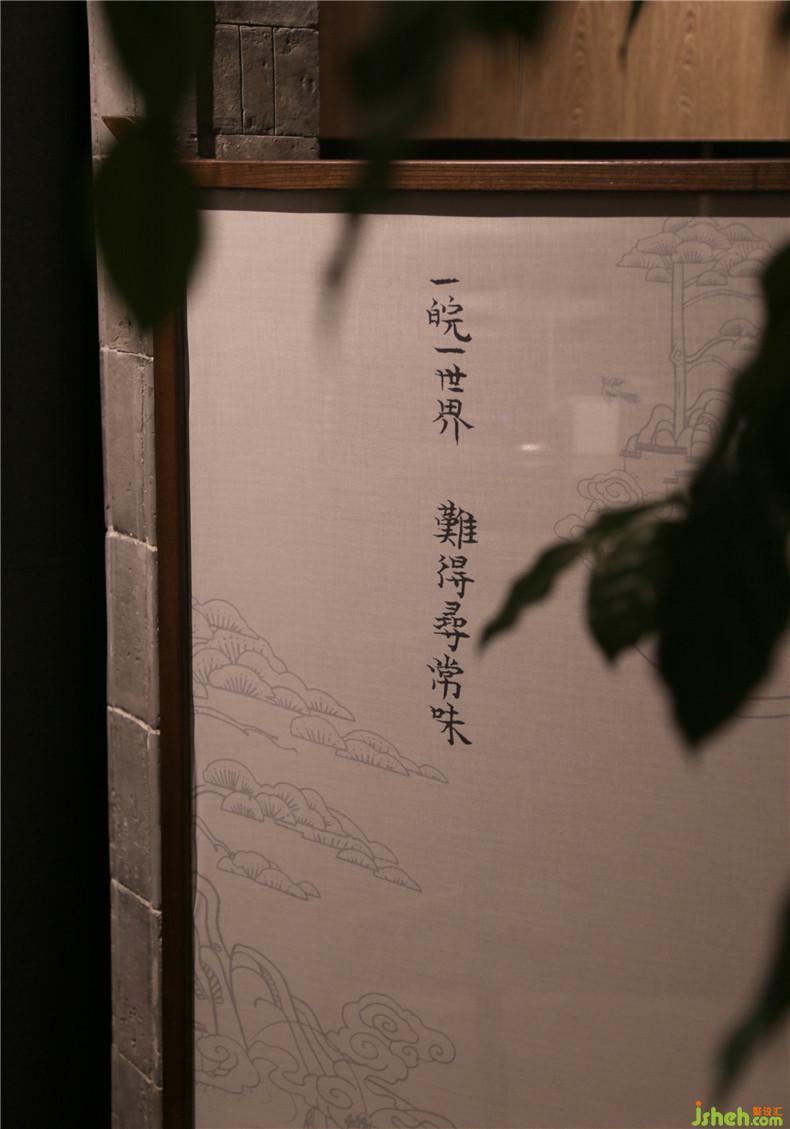 一皖一世界 難得尋常味
jsheh.com
聚设汇